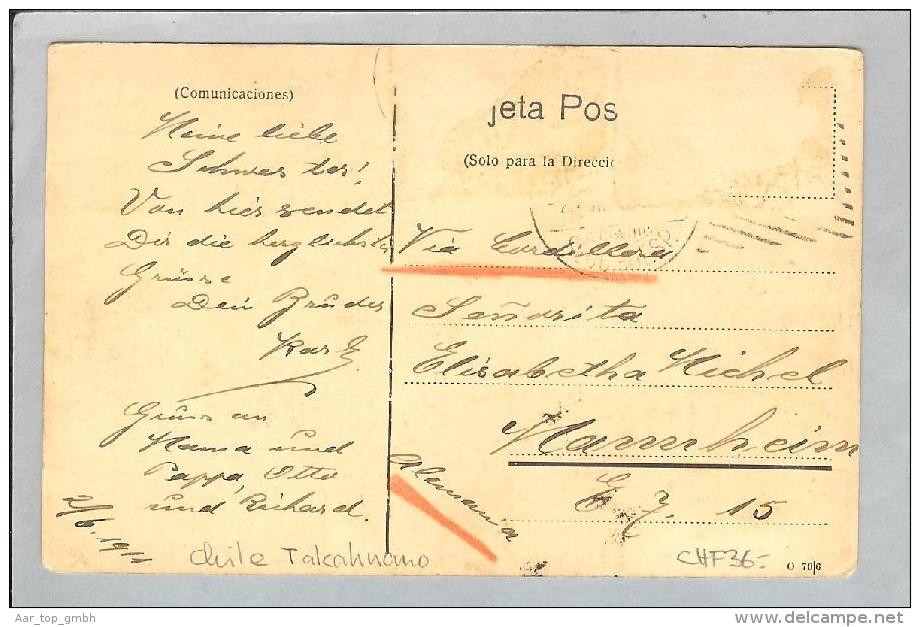 (Comunicaciones)
Meine liebe
Schwester!
Von hier sendet
Dir die herzlichste
Grüsse
Dein Bruder
Karl
Gruss an
Mama und
Pappa, Otto
und Richard.
2/6. 1911
jeta Pos
(Solo para la Direcció
Via Cordillera
Señorita
Elisabetha Michel
Mannheim
C 7. 15
Alemania
Chile Talcahuano
CHF 36.-
O 70/6
Aar_top_gmbh
delcampe.net